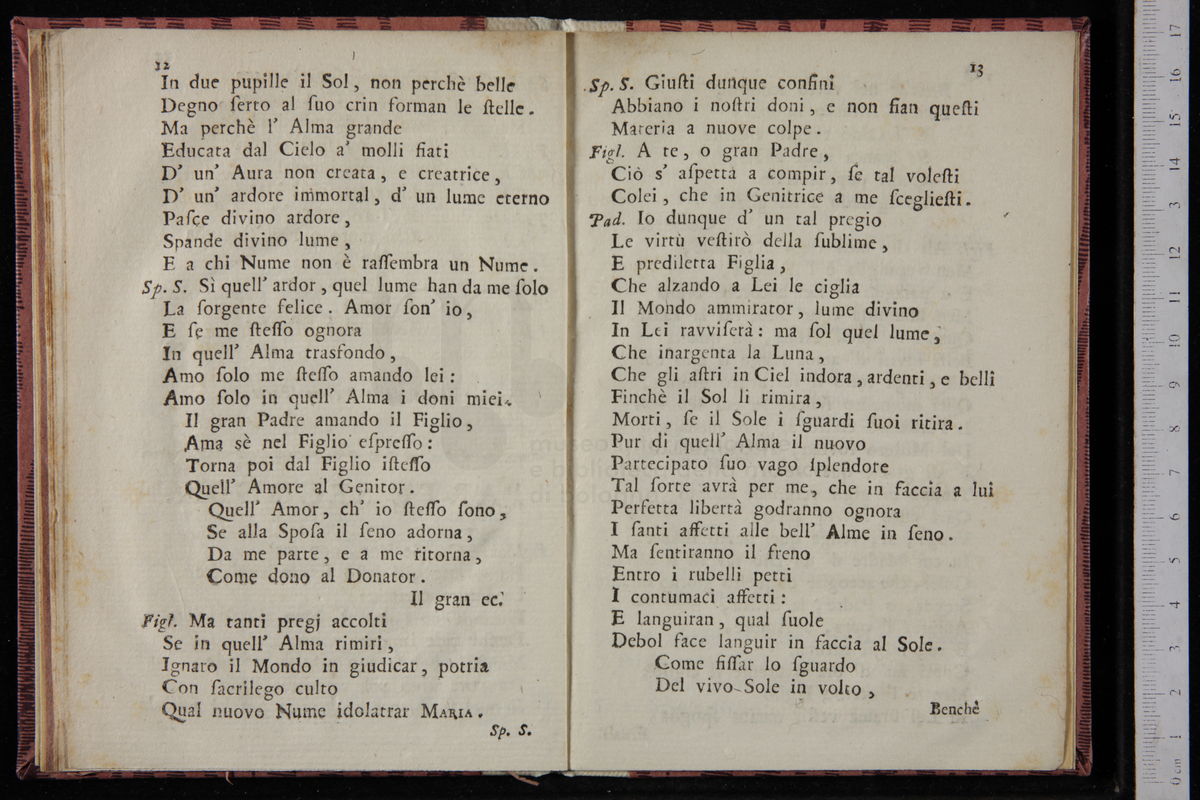 12
In due pupille il Sol, non perchè belle
Degno ſerto al ſuo crin forman le ſtelle.
Ma perchè l' Alma grande
Educata dal Cielo a' molli fiati
D' un' Aura non creata, e creatrice,
D' un' ardore immortal, d' un lume eterno
Paſce divino ardore,
Spande divino lume,
E a chi Nume non è raſſembra un Nume.
Sp. S. Sì quell' ardor, quel lume han da me ſolo
La ſorgente felice. Amor ſon' io,
E ſe me ſteſſo ognora
In quell' Alma trasfondo,
Amo ſolo me ſteſſo amando lei:
Amo ſolo in quell' Alma i doni miei.
Il gran Padre amando il Figlio,
Ama sè nel Figlio eſpreſſo:
Torna poi dal Figlio iſteſſo
Quell' Amore al Genitor.
Quell' Amor, ch' io ſteſſo ſono,
Se alla Spoſa il ſeno adorna,
Da me parte, e a me ritorna,
Come dono al Donator.
Il gran ec.
Figl. Ma tanti pregj accolti
Se in quell' Alma rimiri,
Ignaro il Mondo in giudicar, potria
Con ſacrilego culto
Qual nuovo Nume idolatrar MARIA.
Sp. S.
13
Sp. S. Giuſti dunque confini
Abbiano i noſtri doni, e non ſian queſti
Materia a nuove colpe.
Figl. A te, o gran Padre,
Ciò s' aſpetta a compir, ſe tal voleſti
Colei, che in Genitrice a me ſceglieſti.
Pad. Io dunque d' un tal pregio
Le virtù veſtirò della ſublime,
E prediletta Figlia,
Che alzando a Lei le ciglia
Il Mondo ammirator, lume divino
In Lei ravviſerà: ma ſol quel lume,
Che inargenta la Luna,
Che gli aſtri in Ciel indora, ardenti, e belli
Finchè il Sol li rimira,
Morti, ſe il Sole i ſguardi ſuoi ritira.
Pur di quell' Alma il nuovo
Partecipato ſuo vago ſplendore
Tal ſorte avrà per me, che in faccia a lui
Perfetta libertà godranno ognora
I ſanti affetti alle bell' Alme in ſeno.
Ma ſentiranno il freno
Entro i rubelli petti
I contumaci affetti:
E languiran, qual ſuole
Debol face languir in faccia al Sole.
Come fiſſar lo ſguardo
Del vivo Sole in volto,
Benchè